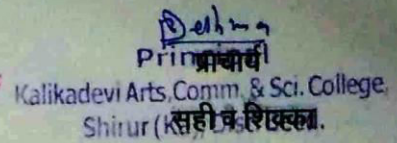 Principal
प्राचार्य
Kalikadevi Arts, Comm. & Sci. College,
Shirur (K
सही व शिक्का